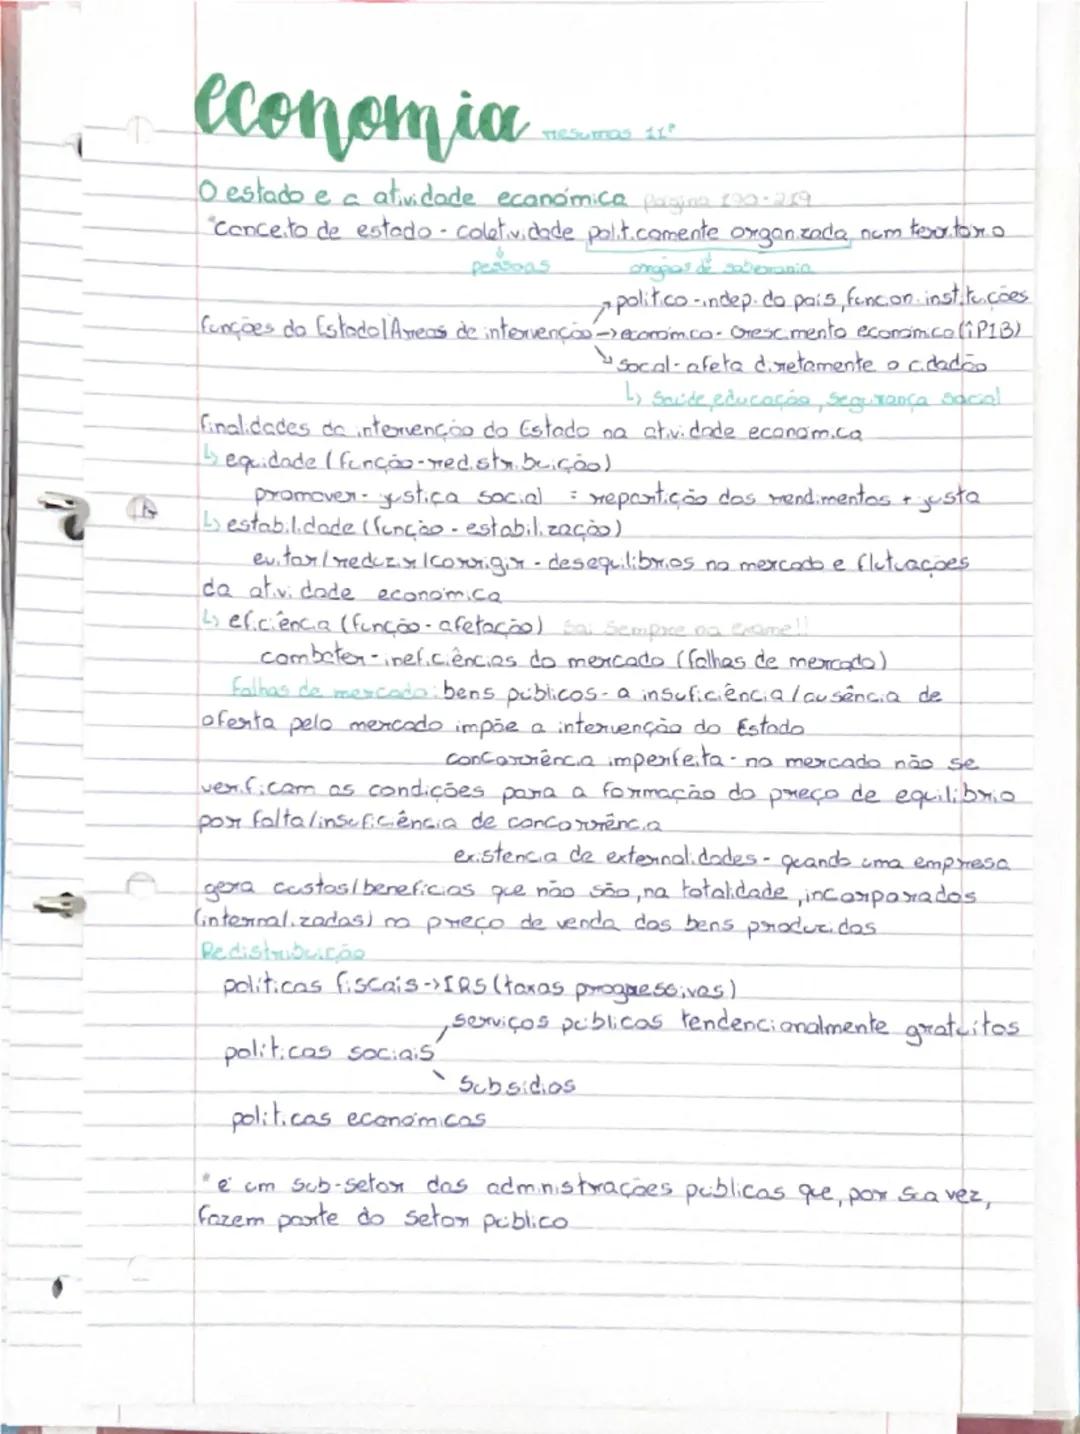 economia resumos 11º
O estado e a atividade económica página 190-219
*conceito de estado - coletividade politicamente organizada num território
pessoas orgãos de soberania
político - indep. do país, funcion. instituições
funções do Estado/Áreas de intervenção → económico - crescimento económico (↑PIB)
social - afeta diretamente o cidadão
↳ Saúde, educação, segurança social
finalidades da intervenção do Estado na atividade económica
↳ equidade (função - redistribuição)
promover - justiça social = repartição dos rendimentos + justa
↳ estabilidade (função - estabilização)
evitar/reduzir/corrigir - desequilíbrios no mercado e flutuações
da atividade económica
↳ eficiência (função - afetação) Sai sempre no exame!!
combater - ineficiências do mercado (falhas de mercado)
falhas de mercado: bens públicos - a insuficiência/ausência de
oferta pelo mercado impõe a intervenção do Estado
concorrência imperfeita - no mercado não se
verificam as condições para a formação do preço de equilíbrio
por falta/insuficiência de concorrência
existencia de externalidades - quando uma empresa
gera custos/benefícios que não são, na totalidade, incorporados
(internalizados) no preço de venda dos bens produzidos
Redistribuição
políticas fiscais → IRS (taxas progressivas)
serviços públicos tendencionalmente gratuitos
políticas sociais
Subsídios
políticas económicas
*é um sub-setor das administrações públicas que, por sua vez,
fazem parte do setor público